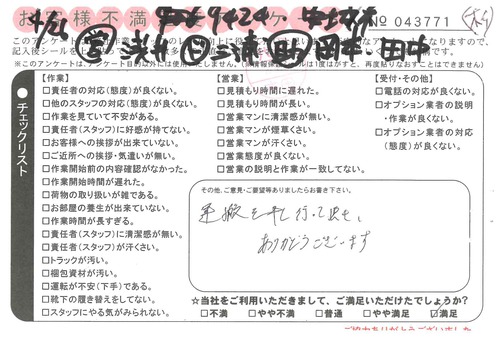 お客様不満
No 043771
4/26 営 浅井
このアンケートは
※このアンケートは、アンケート目的以外には使用いたしません。
田中
チェックリスト
【作業】
□責任者の対応(態度)が良くない。
□他のスタッフの対応(態度)が良くない。
□作業を見ていて不安がある。
□責任者(スタッフ)に好感が持てない。
□お客様への挨拶が出来ていない。
□ご近所への挨拶・気遣いが無い。
□作業開始前の内容確認がなかった。
□作業開始時間が遅れた。
□荷物の取り扱いが雑である。
□お部屋の養生が出来ていない。
□作業時間が長すぎる。
□責任者(スタッフ)に清潔感が無い。
□責任者(スタッフ)が汗くさい。
□トラックが汚い。
□梱包資材が汚い。
□運転が不安(下手)である。
□靴下の履き替えをしてない。
□スタッフにやる気がみられない。
【営業】
□見積もり時間に遅れた。
□見積もり時間が長い。
□営業マンに清潔感が無い。
□営業マンが煙草くさい。
□営業マンが汗くさい。
□営業態度が良くない。
□営業の説明と作業が一致してない。
【受付・その他】
□電話の対応が良くない。
□オプション業者の説明
・作業が良くない。
□オプション業者の対応
(態度)が良くない。
その他、ご意見・ご要望等ありましたらお書き下さい。
ありがとうございます
☆当社をご利用いただきまして、ご満足いただけたでしょうか?
□不満 □やや不満 □普通 □やや満足 ☑満足
ご協力ありがとうございました